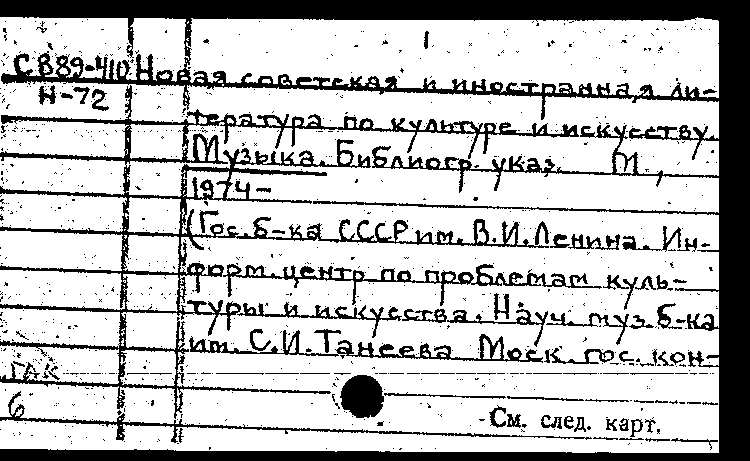 1
СВ89-410 Новая советская и иностранная ли-
Н-72
тература по культуре и искусству.
Музыка. Библиогр. указ. М.,
1974-
(Гос. б-ка СССР им. В.И.Ленина. Ин-
форм. центр по проблемам куль-
туры и искусства. Науч. муз. б-ка
им. С.И.Танеева Моск. гос. кон-
ГАК
6
См. след. карт.